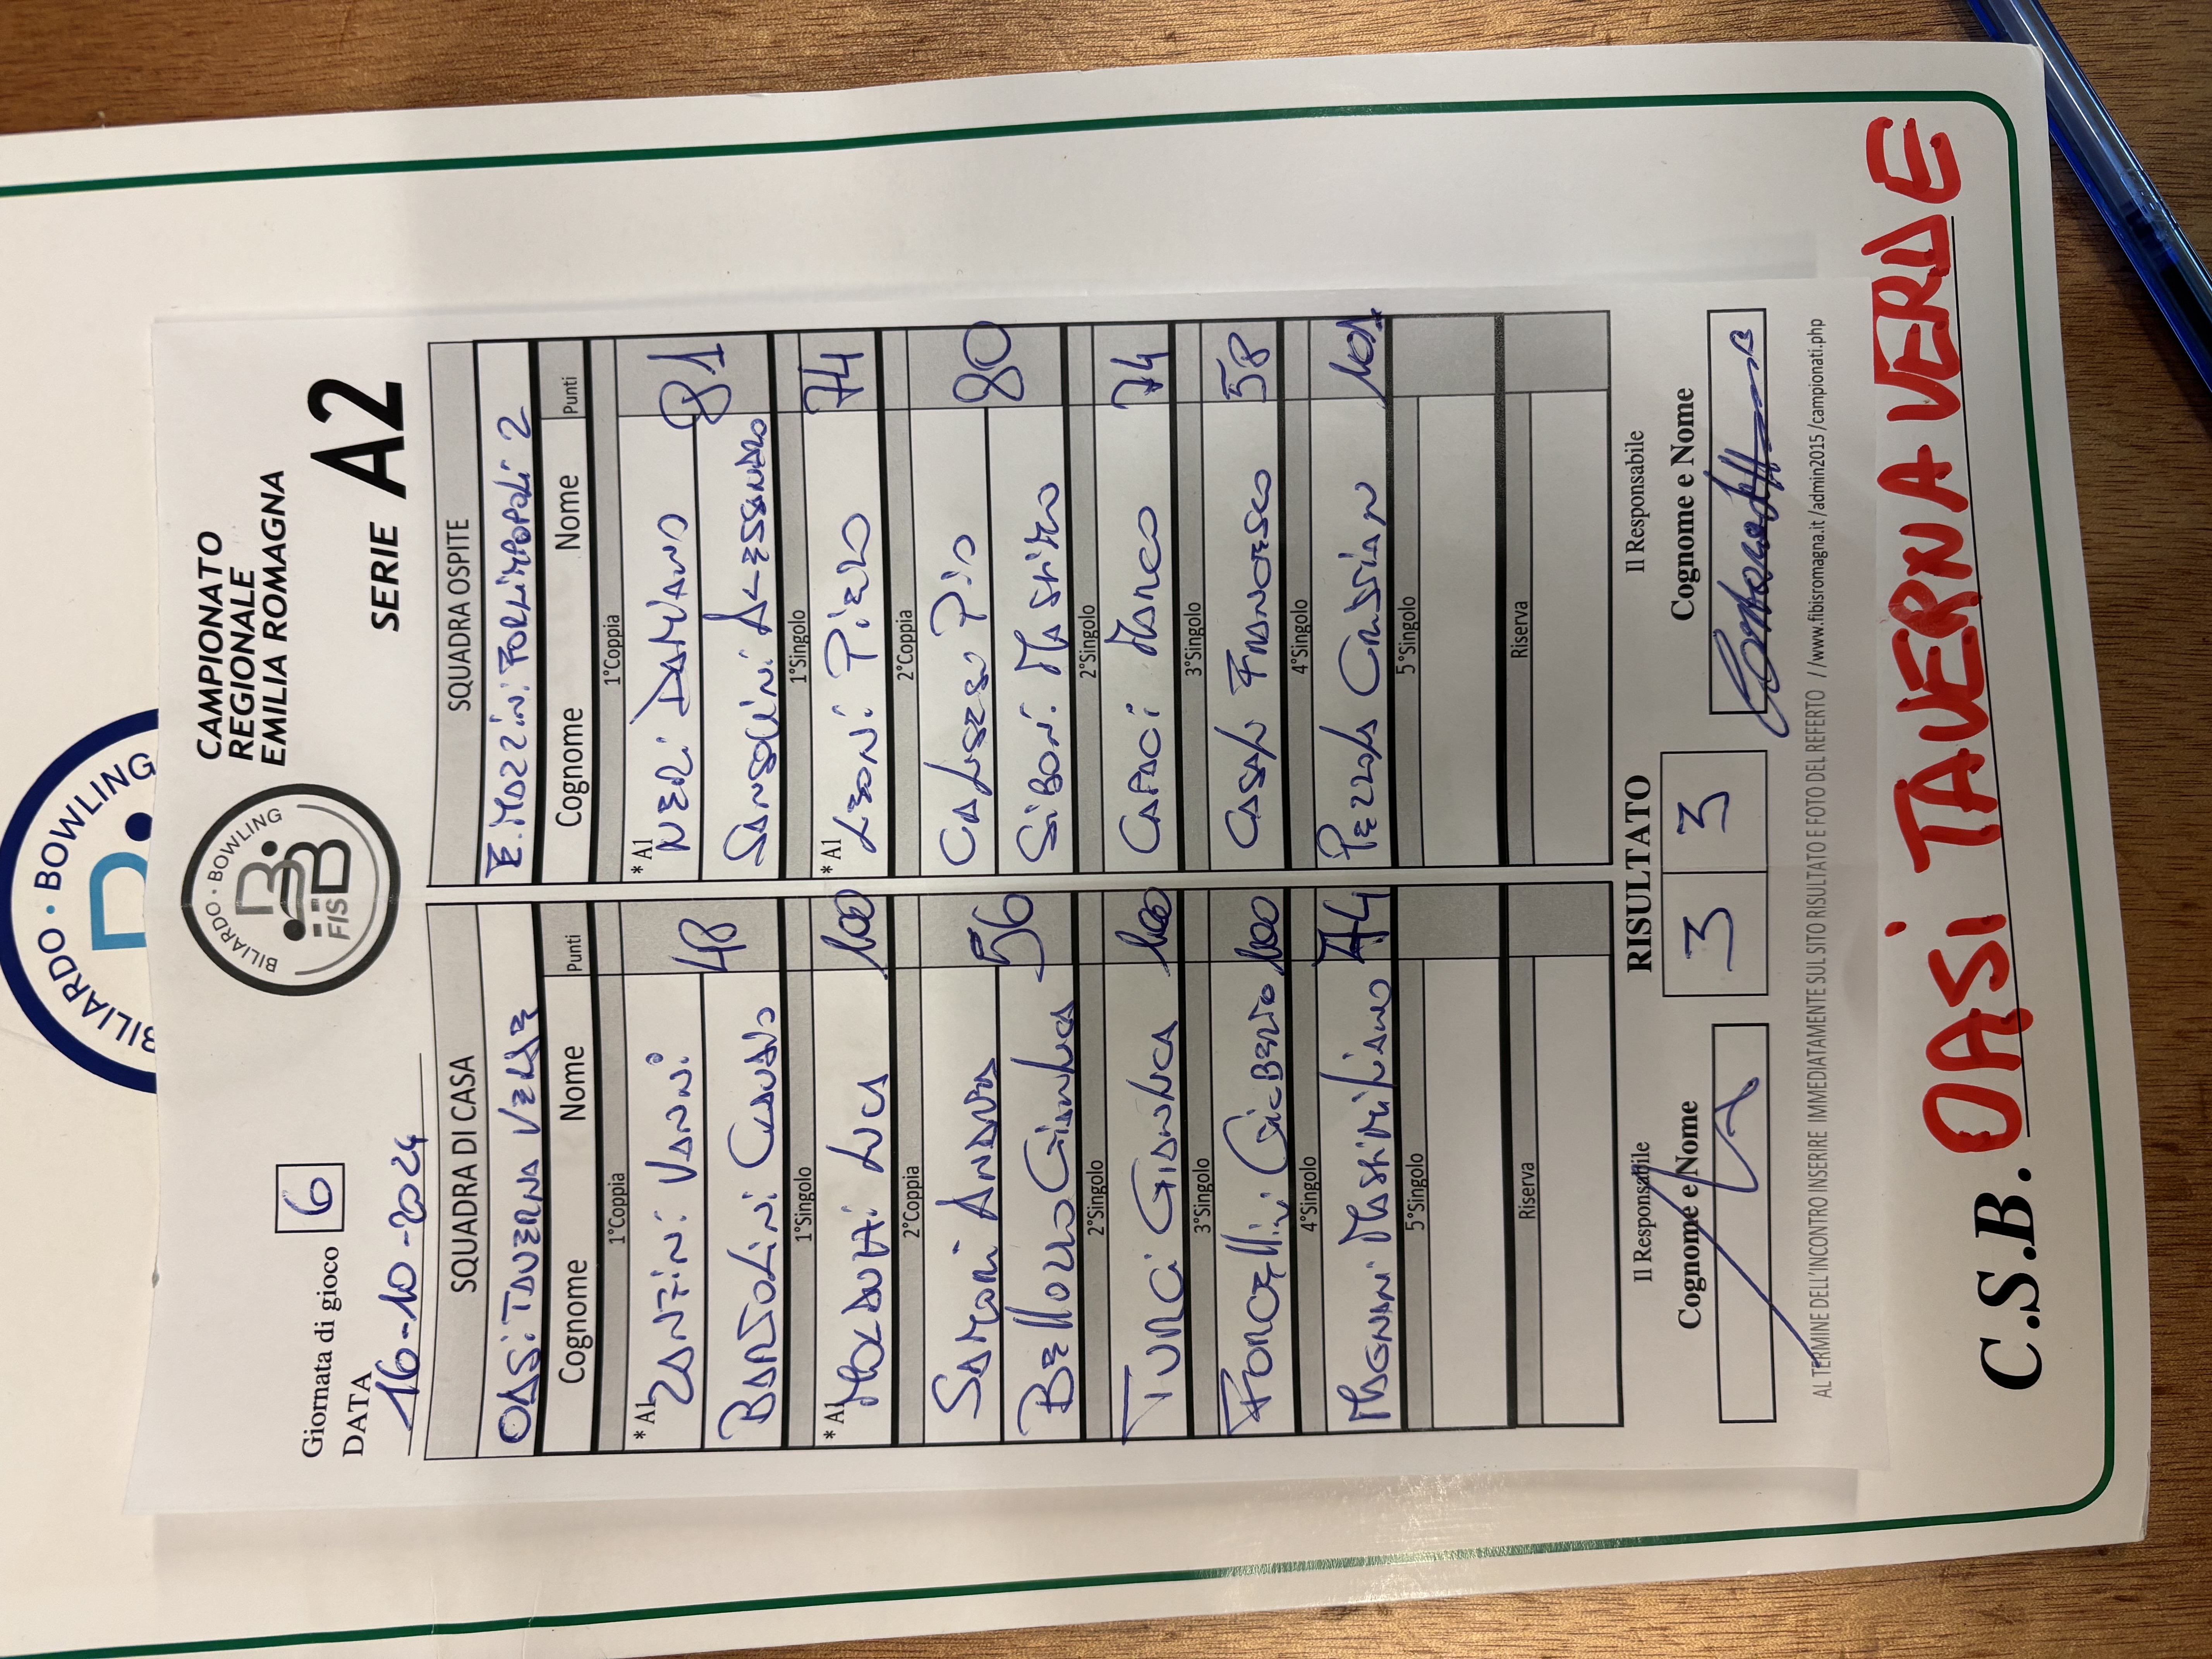 BILIARDO · BOWLING
Giornata di gioco 6
DATA
16-10-2024
BILIARDO · BOWLING
FISBB
CAMPIONATO
REGIONALE
EMILIA ROMAGNA
SERIE A2
SQUADRA DI CASA
OASI TAVERNA VERDE
Cognome Nome Punti
1°Coppia
* A1
ZANFINI VANNI 48
BARZOLINI CLAUDIO
1°Singolo
* A1
MOLDUTTI LUCA 100
2°Coppia
SAMORI ANDREA 56
BELLOZZO GIANLUCA
2°Singolo
TURCI GIANLUCA 100
3°Singolo
FORCELLINI GILBERTO 100
4°Singolo
MAGNANI MASSIMILIANO 74
5°Singolo
Riserva
SQUADRA OSPITE
E. MAZZINI FORLIMPOPOLI 2
Cognome Nome Punti
1°Coppia
* A1
NERI DAMIANO 81
SANSOVINI ALESSANDRO
1°Singolo
* A1
LEONI PIERO 74
2°Coppia
CALISESE PIO 80
SIBONI MASSIMO
2°Singolo
CAPACI MARCO 74
3°Singolo
CASALI FRANCESCO 58
4°Singolo
PEZZOLA CRISTIAN 101
5°Singolo
Riserva
Il Responsabile
Cognome e Nome
RISULTATO
3 3
Il Responsabile
Cognome e Nome
AL TERMINE DELL'INCONTRO INSERIRE IMMEDIATAMENTE SUL SITO RISULTATO E FOTO DEL REFERTO / www.fibisromagna.it /admin2015 /campionati.php
C.S.B. OASI TAVERNA VERDE